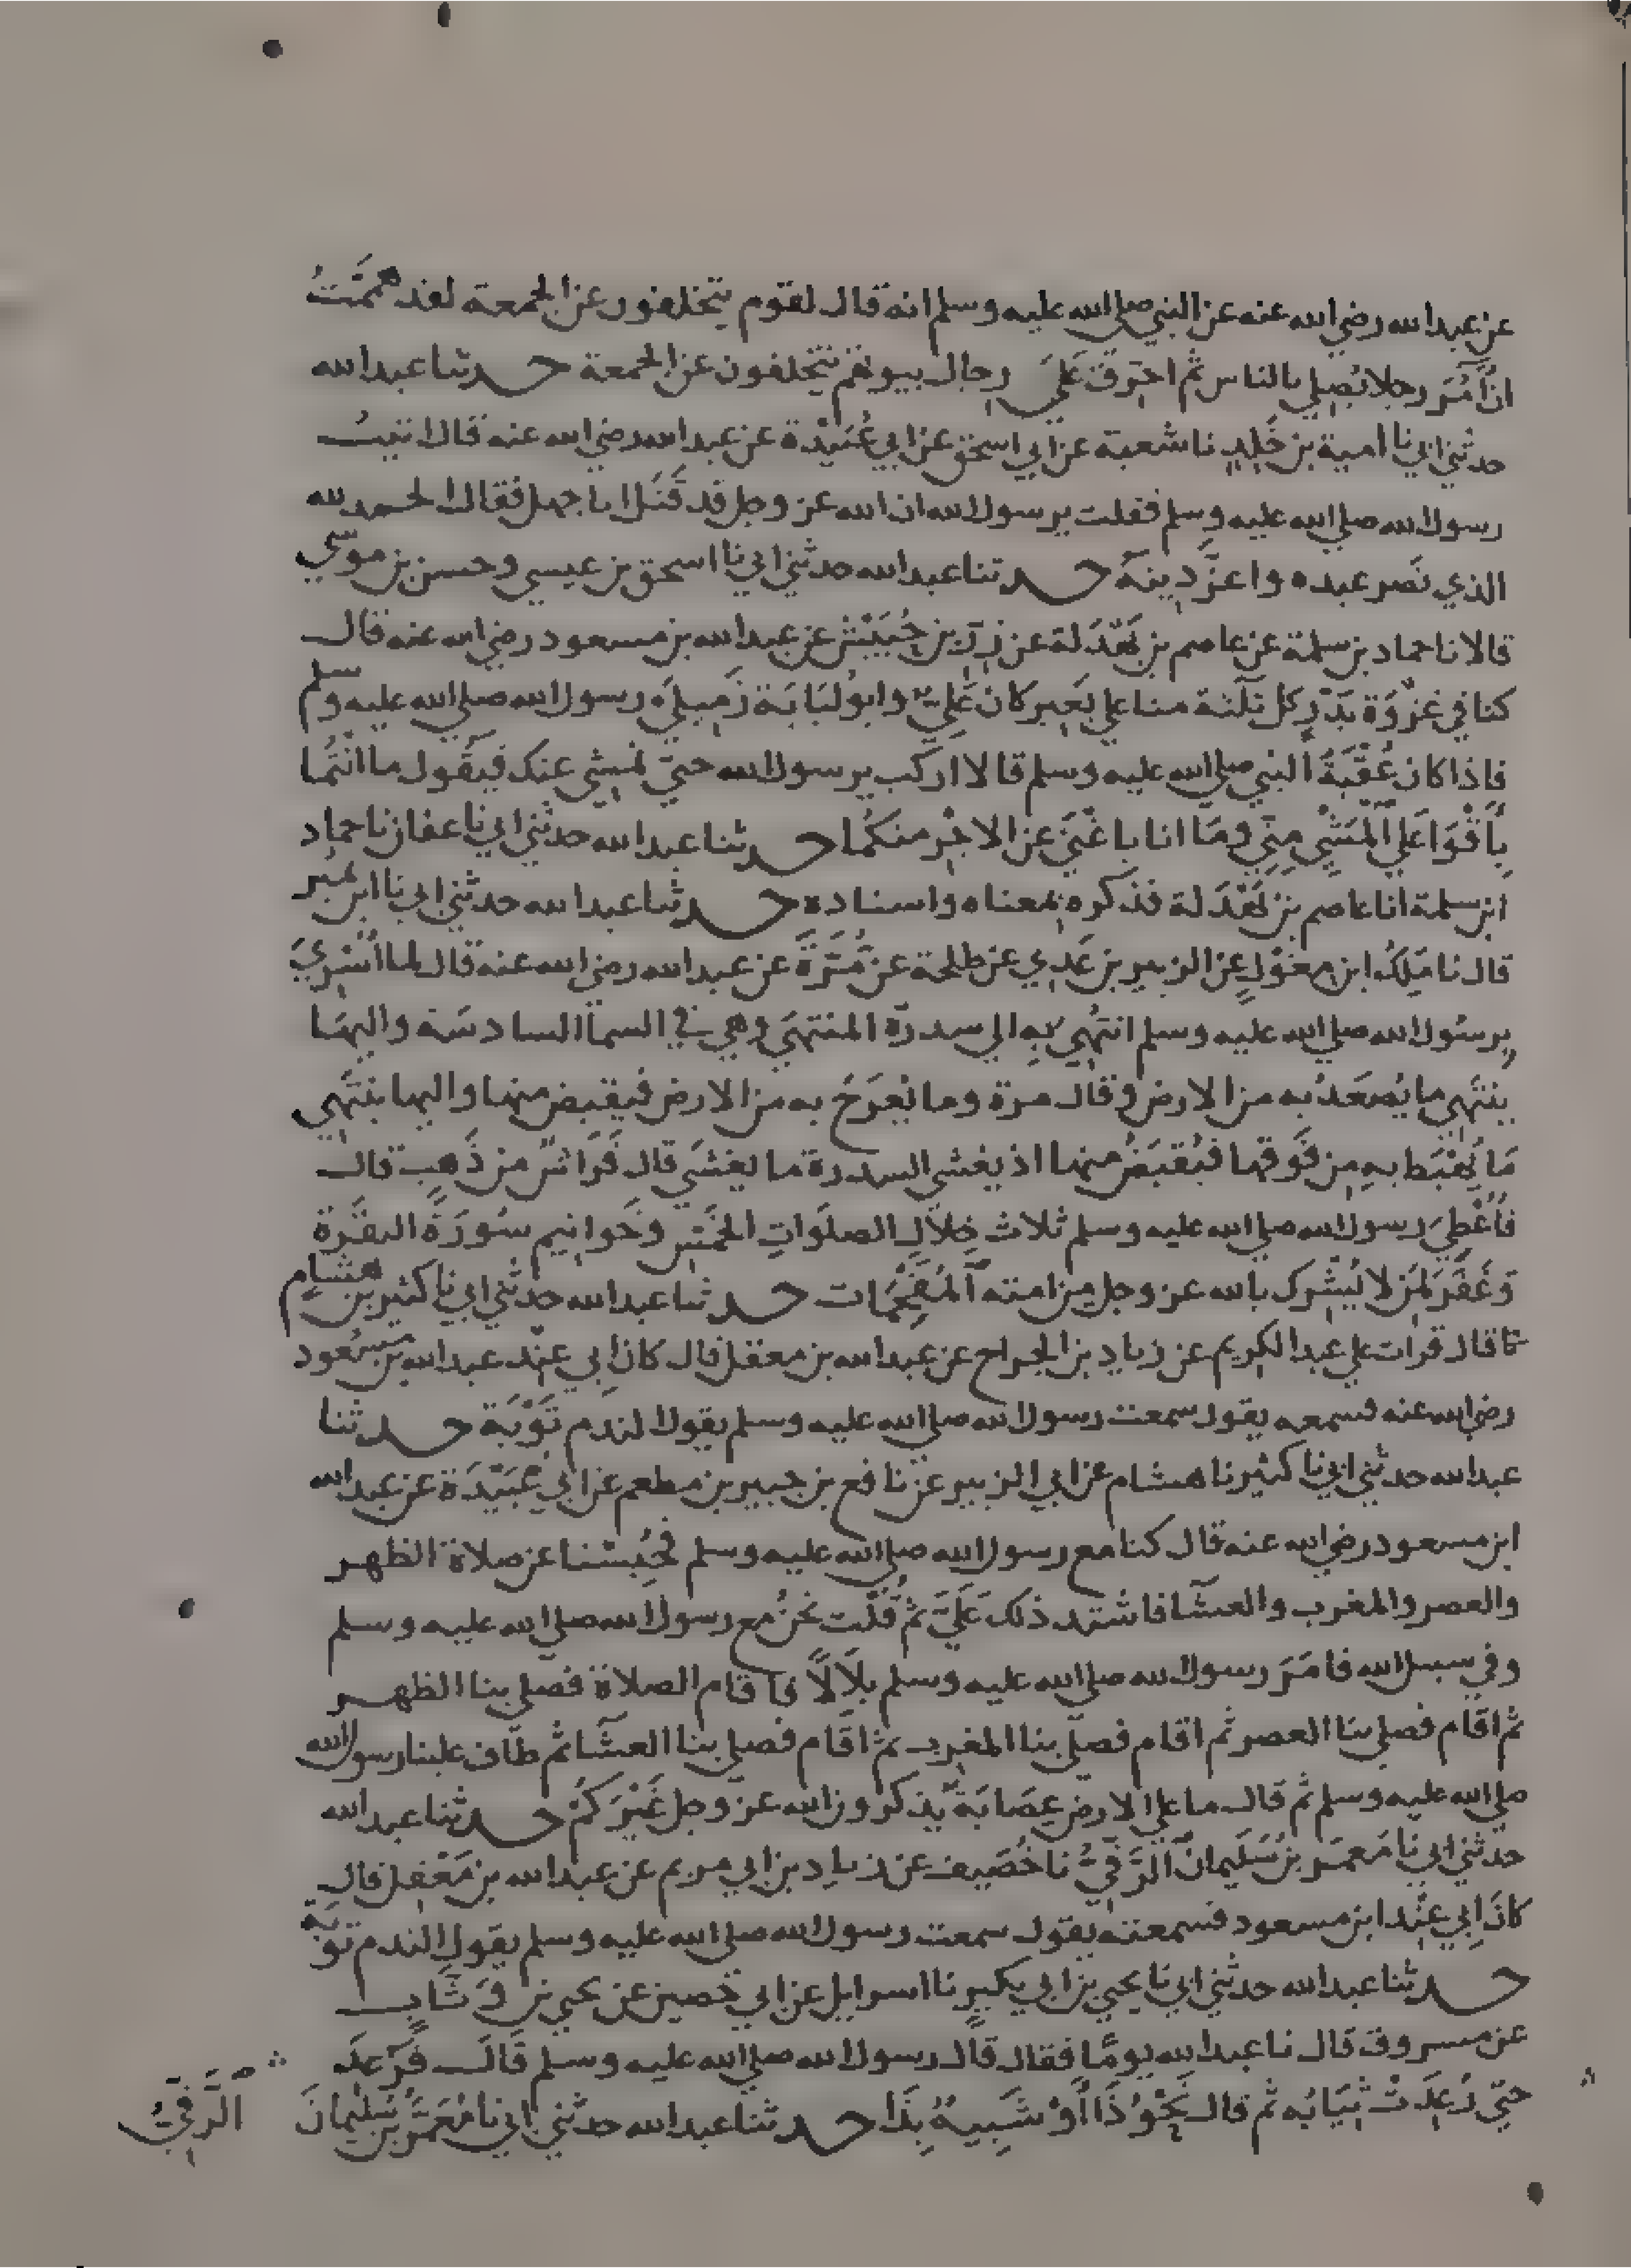 عن عبد الله رضي الله عنه عن النبي صلى الله عليه وسلم انه قال لقوم يتخلفون عن الجمعة لقد هممت
ان آمر رجلا يصلي بالناس ثم احرق علي رجال بيوتهم يتخلفون عن الجمعة حدثنا عبد الله
حدثني ابي نا امية بن خلد نا شعبة عن ابي اسحق عن ابي عبيدة عن عبد الله رضي الله عنه قال اتيت
رسول الله صلي الله عليه وسلم فقلت يرسول الله ان الله عز وجل قد قتل ابا جهل فقال الحمد لله
الذي نصر عبده واعز دينه حدثنا عبد الله حدثني ابي نا اسحق بن عيسي وحسن بن موسي
قالا نا حماد بن سلمة عن عاصم بن بهدلة عن زر بن حبيش عن عبد الله بن مسعود رضي الله عنه قال
كنا في غزوة بدر كل ثلثة منا علي بعير كان علي وابو لبابة زميلي رسول الله صلي الله عليه وسلم
فاذا كان عقبة النبي صلي الله عليه وسلم قالا اركب يرسول الله حتي نمشي عنك فيقول ما انتما
باقوا علي المشي مني وما انا باغني عن الاجر منكما حدثنا عبد الله حدثني ابي نا عفان نا حماد
ابن سلمة انا عاصم بن بهدلة فذكره بمعناه واسناده حدثنا عبد الله حدثني ابي نا ابن نمير
قال نا ملك ابن مغول عن الزبير بن عدي عن طلحة عن مرة عن عبد الله رضي الله عنه قال لما اسري
برسول الله صلي الله عليه وسلم انتهي به الي سدرة المنتهي وهي في السما السادسة واليها
ينتهي ما يصعد به من الارض وقال مرة وما يعرج به من الارض فيقبض منها واليها ينتهي
ما يهبط به من فوقها فيقبض منها اذ يغشي السدرة ما يغشي قال فراش من ذهب قال
فاعطي رسول الله صلي الله عليه وسلم ثلاث خلال الصلوات الخمس وخواتيم سورة البقرة
وغفر لمن لا يشرك بالله عز وجل من امته المقحمات حدثنا عبد الله حدثني ابي نا كثير بن هشام
قال قرات علي عبد الكريم عن زياد بن الجراح عن عبد الله بن معقل قال كان ابي عند عبد الله بن مسعود
رضي الله عنه فسمعه يقول سمعت رسول الله صلي الله عليه وسلم يقول الندم توبة حدثنا
عبد الله حدثني ابي نا كثير نا هشام عن ابي الزبير عن نافع بن جبير بن مطعم عن ابي عبيدة عن عبد الله
ابن مسعود رضي الله عنه قال كنا مع رسول الله صلي الله عليه وسلم فحبسنا عن صلاة الظهر
والعصر والمغرب والعشآ فاشتد ذلك علي ثم قلت نحن مع رسول الله صلي الله عليه وسلم
وفي سبيل الله فامر رسول الله صلي الله عليه وسلم بلالا فاقام الصلاة فصلي بنا الظهر
ثم اقام فصلي بنا العصر ثم اقام فصلي بنا المغرب ثم اقام فصلي بنا العشآ ثم طاف علينا رسول الله
صلي الله عليه وسلم ثم قال ما علي الارض عصابة يذكرون الله عز وجل غيركم حدثنا عبد الله
حدثني ابي نا معمر بن سليمان الرقي نا خصيف عن زياد بن ابي مريم عن عبد الله بن معقل قال
كان ابي عند ابن مسعود فسمعته يقول سمعت رسول الله صلي الله عليه وسلم يقول الندم توبة
حدثنا عبد الله حدثني ابي نا يحيي بن ابي بكير نا اسرايل عن ابي حصين عن يحيي بن وثاب
عن مسروق قال نا عبد الله يوما فقال قال رسول الله صلي الله عليه وسلم قال فرعد
حتي رعدت ثيابه ثم قال نحو ذا او شبيه بذا حدثنا عبد الله حدثني ابي نا معمر بن سليمان
الرقي